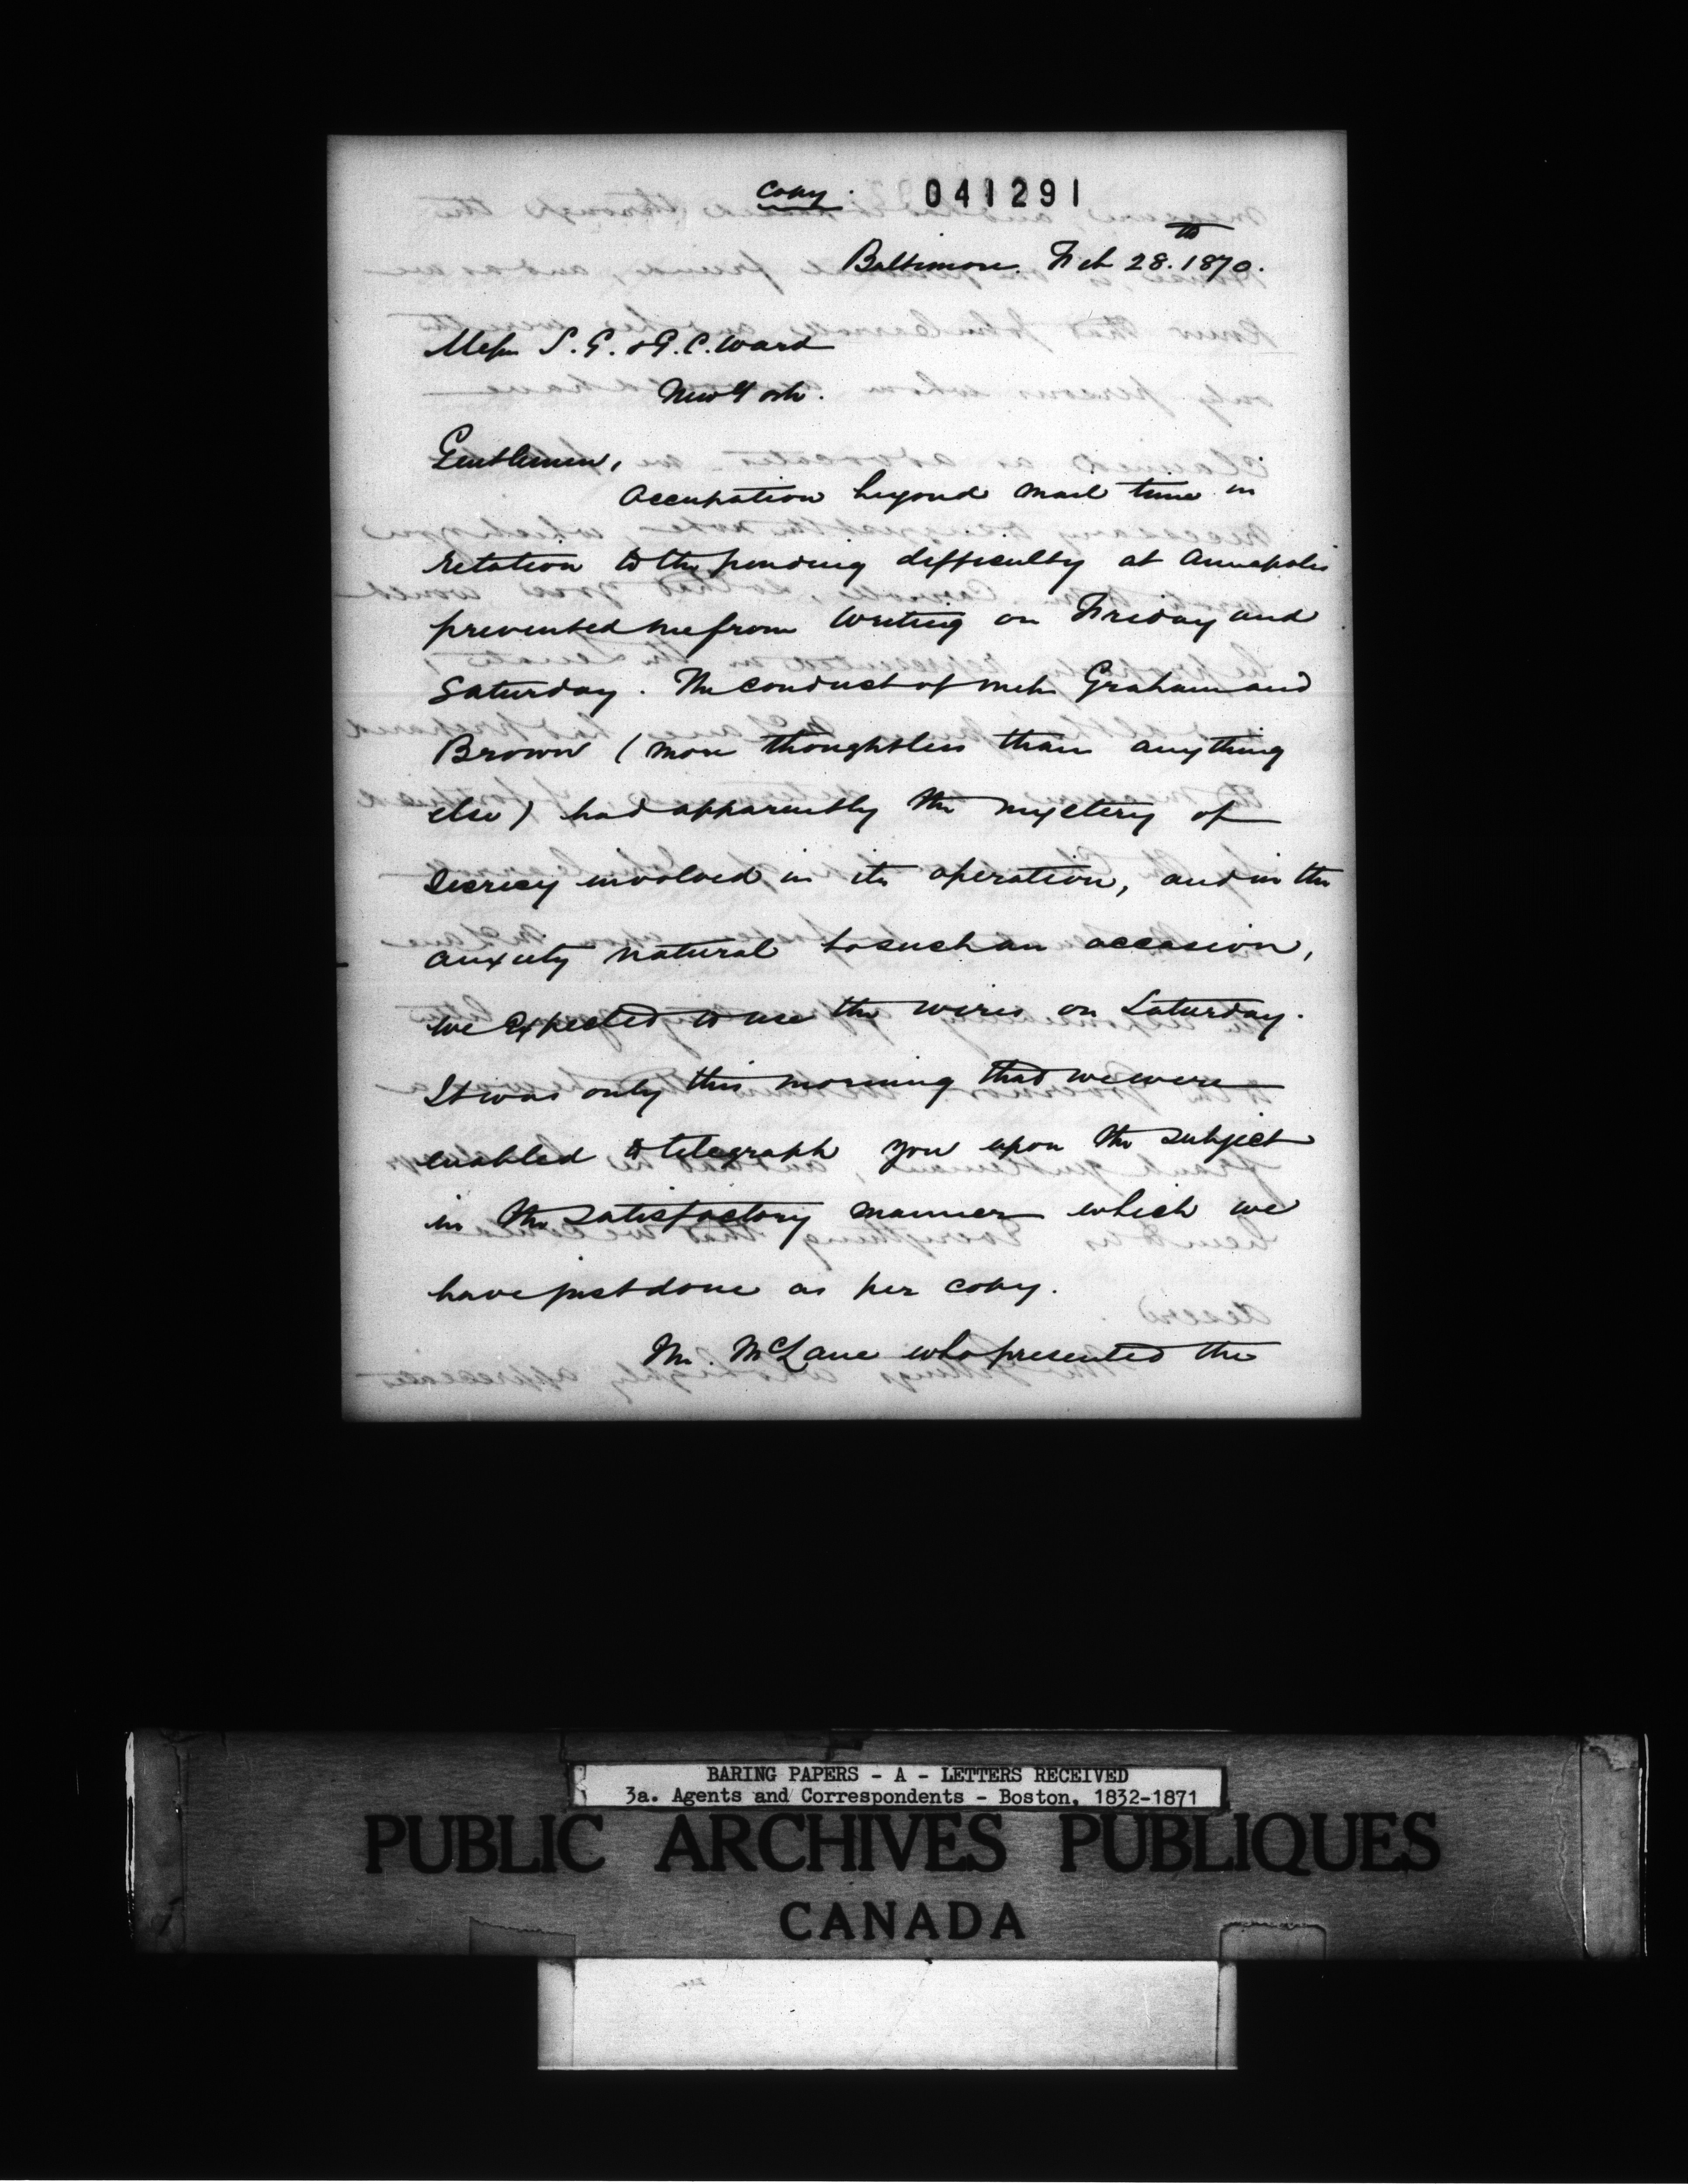 Copy. 041291
Baltimore. Feb 28.th 1870.
Messrs S. G. & G. C. Ward
New York.
Gentlemen,
Occupation beyond mail time in
relation to the pending difficulty at Annapolis
prevented me from writing on Friday and
Saturday. The conduct of Graham and
Brown (more thoughtless than anything
else) had apparently the mystery of
secrecy involved in its operation, and in the
anxiety natural to such an occasion,
we expected to use the wires on Saturday.
It was only this morning that we were
enabled to telegraph you upon the subject
in the satisfactory manner which we
have just done as per copy.
Mr. McLane who presented the
BARING PAPERS - A - LETTERS RECEIVED
3a. Agents and Correspondents - Boston, 1832-1871
PUBLIC ARCHIVES PUBLIQUES
CANADA